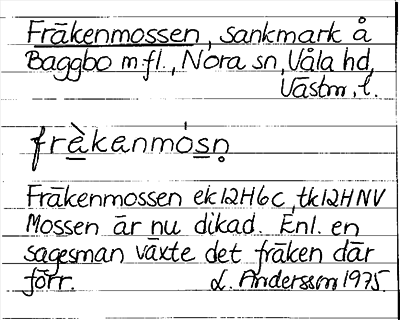 Fräkenmossen, sankmark å
Baggbo m.fl., Nora sn, Våla hd,
Västm. l.
frὲkenmósn̥
Fräkenmossen ek12H6c, tk12HNV
Mossen är nu dikad. Enl. en
sagesman växte det fräken där
förr. L. Andersson 1975.